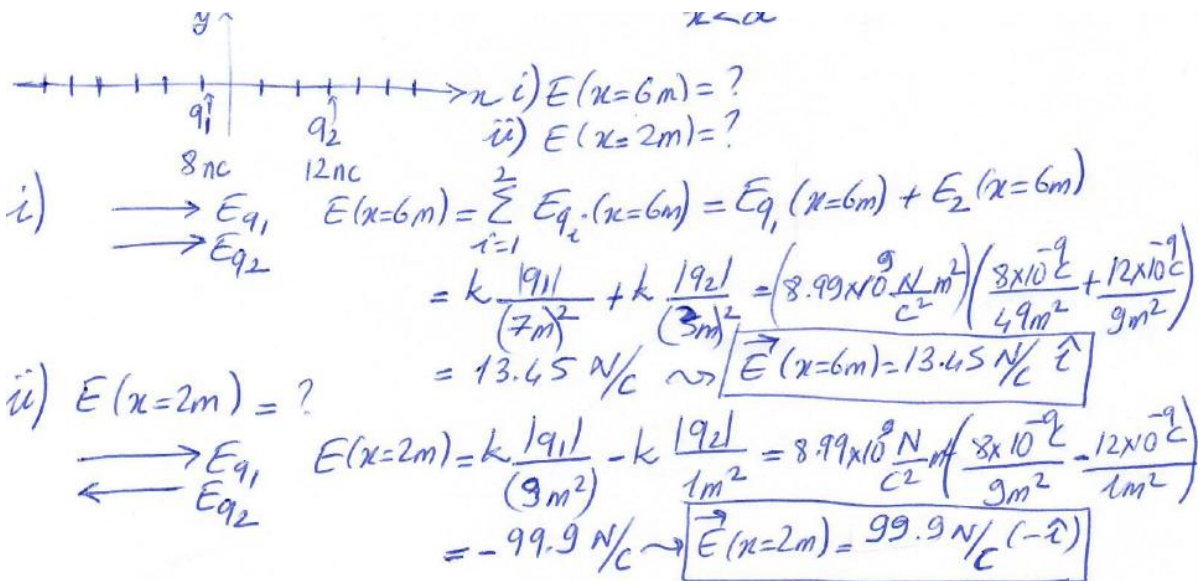 y
x i) E(x=6m) = ?
q₁ q₂ ii) E(x=2m) = ?
8nc 12nc
i) → E_q₁ E(x=6m) = Σ_{i=1}^{2} E_qᵢ(x=6m) = E_q₁(x=6m) + E₂(x=6m)
→ E_q₂
= k |q₁|/(7m)² + k |q₂|/(3m)² = (8.99x10⁹ N/c² m²)(8x10⁻⁹c/49m² + 12x10⁻⁹c/9m²)
= 13.45 N/C ⇝ E⃗(x=6m) = 13.45 N/C î
ii) E(x=2m) = ?
→ E_q₁ E(x=2m) = k |q₁|/(9m²) - k |q₂|/1m² = 8.99x10⁹ N/c² m²(8x10⁻⁹c/9m² - 12x10⁻⁹c/1m²)
← E_q₂
= -99.9 N/C ⇝ E⃗(x=2m) = 99.9 N/C (-î)